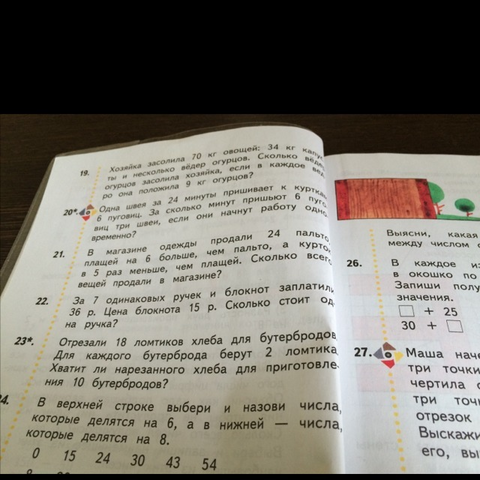 19. Хозяйка засолила 70 кг овощей: 34 кг
ты и несколько вёдер огурцов. Сколько
огурцов засолила хозяйка, если в каждое
ро она положила 9 кг огурцов?
20*. Одна швея за 24 минуты пришивает к куртка
6 пуговиц. За сколько минут пришьют 6 пуго-
виц три швеи, если они начнут работу одно-
временно?
21. В магазине одежды продали 24 пальто,
плащей на 6 больше, чем пальто, а курто
в 5 раз меньше, чем плащей. Сколько всег
вещей продали в магазине?
22. За 7 одинаковых ручек и блокнот заплатил
36 р. Цена блокнота 15 р. Сколько стоит од
на ручка?
23*. Отрезали 18 ломтиков хлеба для бутербродов
Для каждого бутерброда берут 2 ломтика
Хватит ли нарезанного хлеба для приготовле-
ния 10 бутербродов?
24. В верхней строке выбери и назови числа,
которые делятся на 6, а в нижней — числа,
которые делятся на 8.
0 15 24 30 43 54
Выясни, какая
между числом
26. В каждое из
в окошко по
Запиши полу
значения.
□ + 25
30 + □
27. Маша наче
три точки
чертила о
три точк
отрезок
Выскажи
его, вы